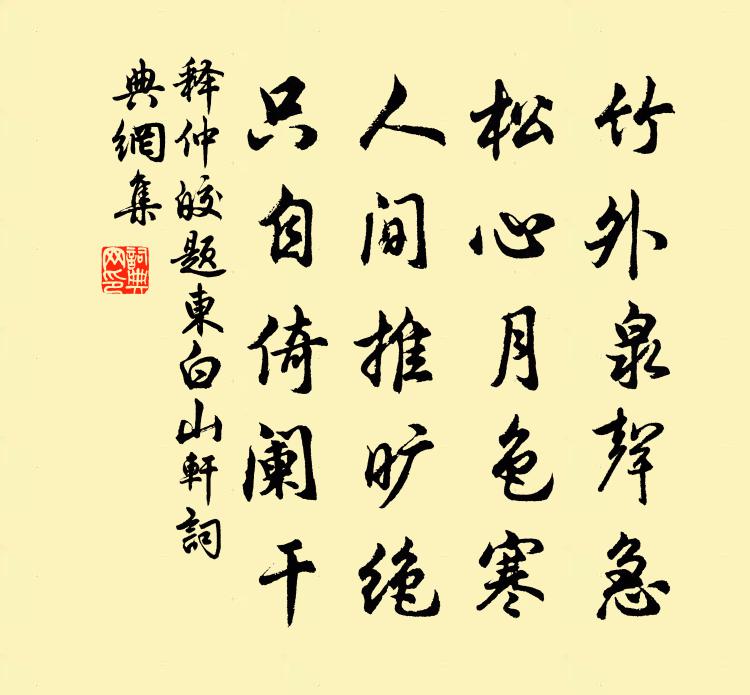 竹外泉聲急
松心月色寒
人间推旷绝
只自倚阑干
释仲皎题東白山軒詞
典網集
詞典网印